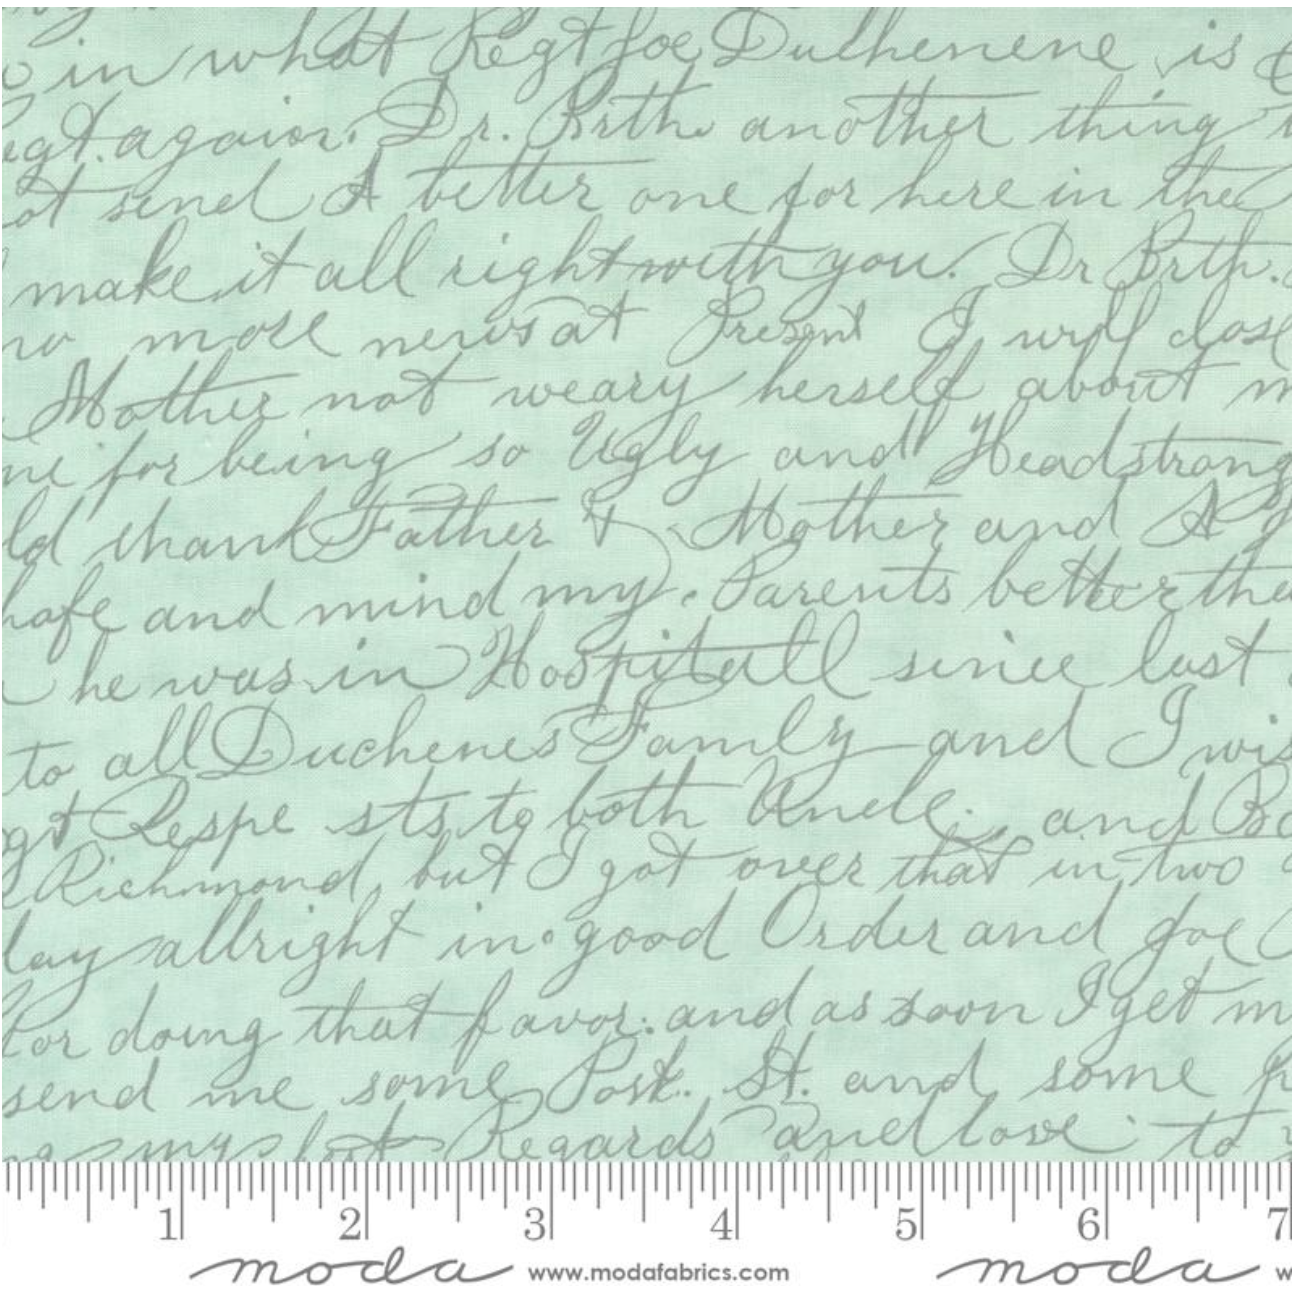 in what Regt Joe Duchenene is
egt. again. Dr. Brth. another thing
ot send A better one for here in the
make it all right with you. Dr Brth.
no more news at Present I will close
Mother not weary herself about m
me for being so Ugly and Headstrong
ld thank Father & Mother and A
and mind my. Parents better tha
he was in Hospitall since last
to all Duchenes Family and I wis
gt Respe sts to both Uncle. and Bo
Richmond, but I got over that in two
lay allright in good Order and Joe
for doing that favor. and as soon I get m
send me some Post. St. and some p
my Regards and love to
1 2 3 4 5 6 7
moda www.modafabrics.com moda w